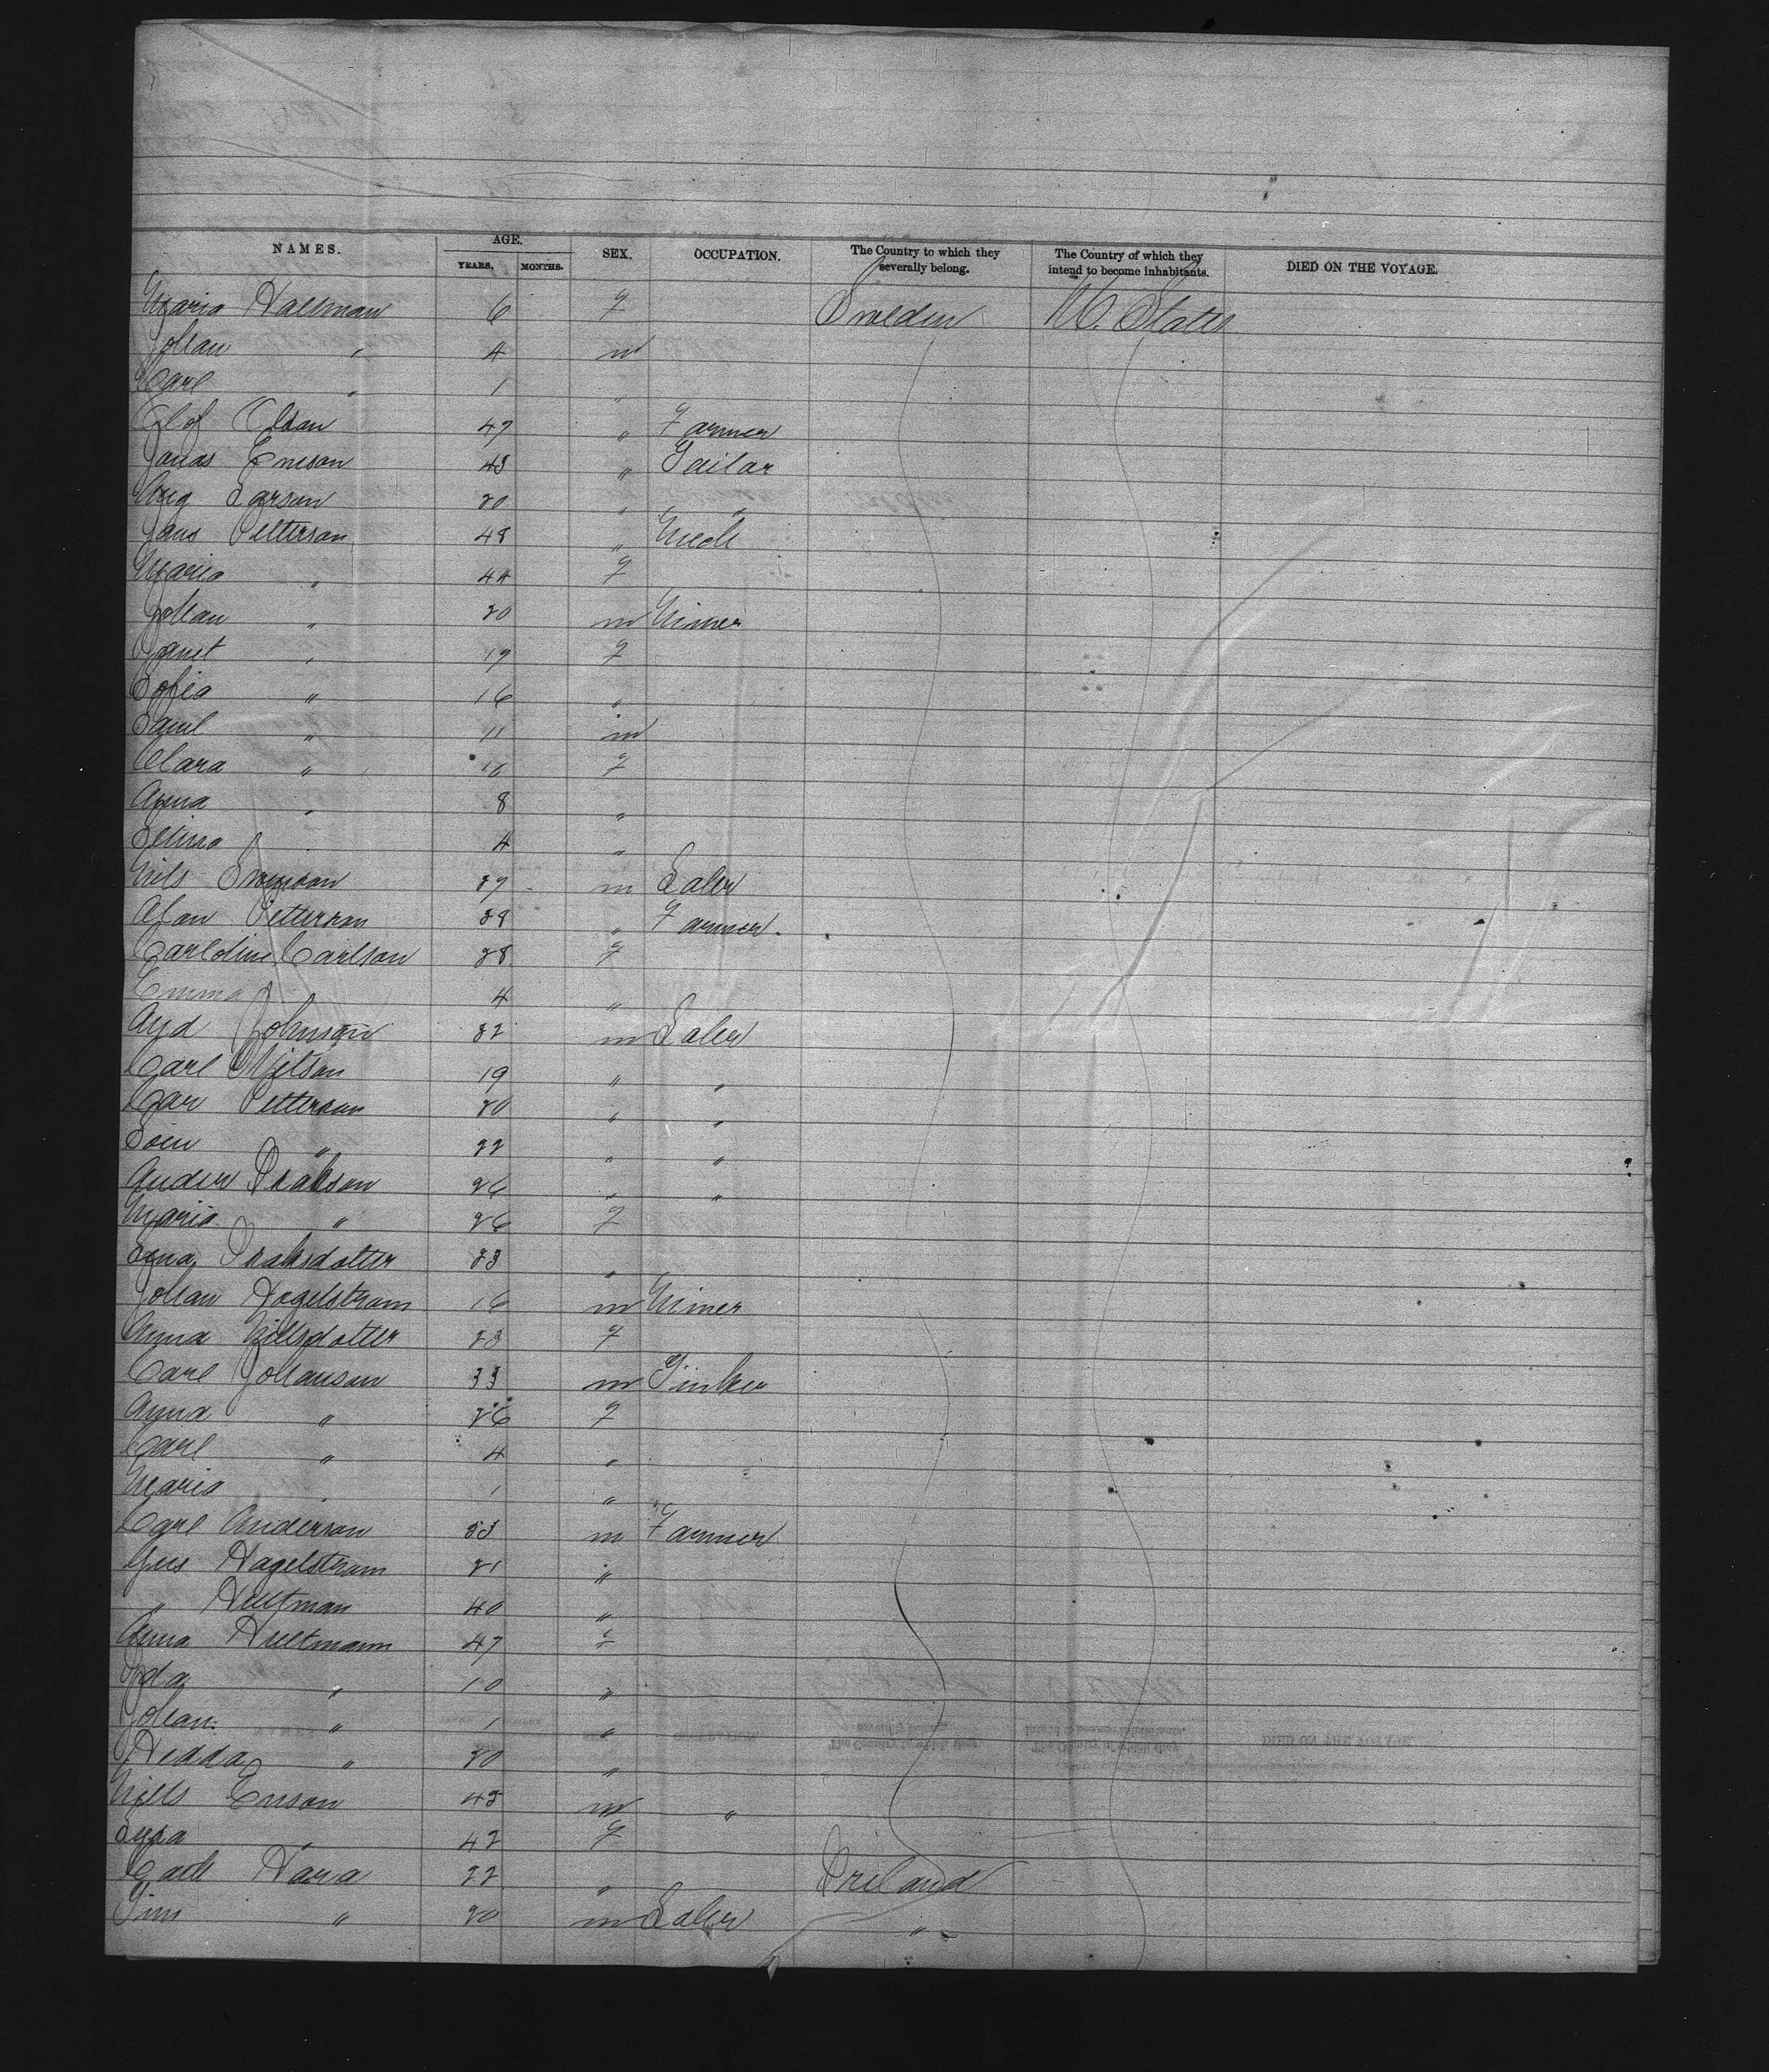 NAMES. AGE. YEARS. MONTHS. SEX. OCCUPATION. The Country to which they severally belong. The Country of which they intend to become inhabitants. DIED ON THE VOYAGE.
Maria Hallman 6 F Sweden U. States
Johan " 4 m
Carl " 1 "
Olof Olson 47 " Farmer
Jonas Ericson 43 " Tailar
Aug Larson 20 " "
Jans Petterson 48 " Mech
Maria " 44 F
Johan " 20 m Miner
Agnet " 19 F
Sofia " 16 "
Saml " 11 m
Clara " 10 F
Anna " 8 "
Selma " 4 "
Nils Swenson 29 m Laber
Alan Petterson 28 " Farmer
Caroline Carlson 28 F
Emma 4 "
And Johnson 32 m Laber
Carl Nilson 19 " "
Car Petterson 20 " "
Soen " 22 " "
Ander Isakson 26 " "
Maria " 26 F
Lena Isaksdotter 23 "
Johan Hagelstrom 16 m Miner
Anna Nillsdotter 23 F
Carl Johanson 33 m Tinker
Anna " 26 F
Carl " 4 "
Maria 1 "
Carl Anderson 23 m Farmer
Gus Hagelstrom 21 "
" Hultman 40 "
Anna Hultmann 47 F
Ida " 10 "
Johan " 1 "
Hedda " 20 "
Nills Erison 45 m "
Lisa " 42 F
Cath Hara 22 " Ireland
Tim " 20 m Laber "